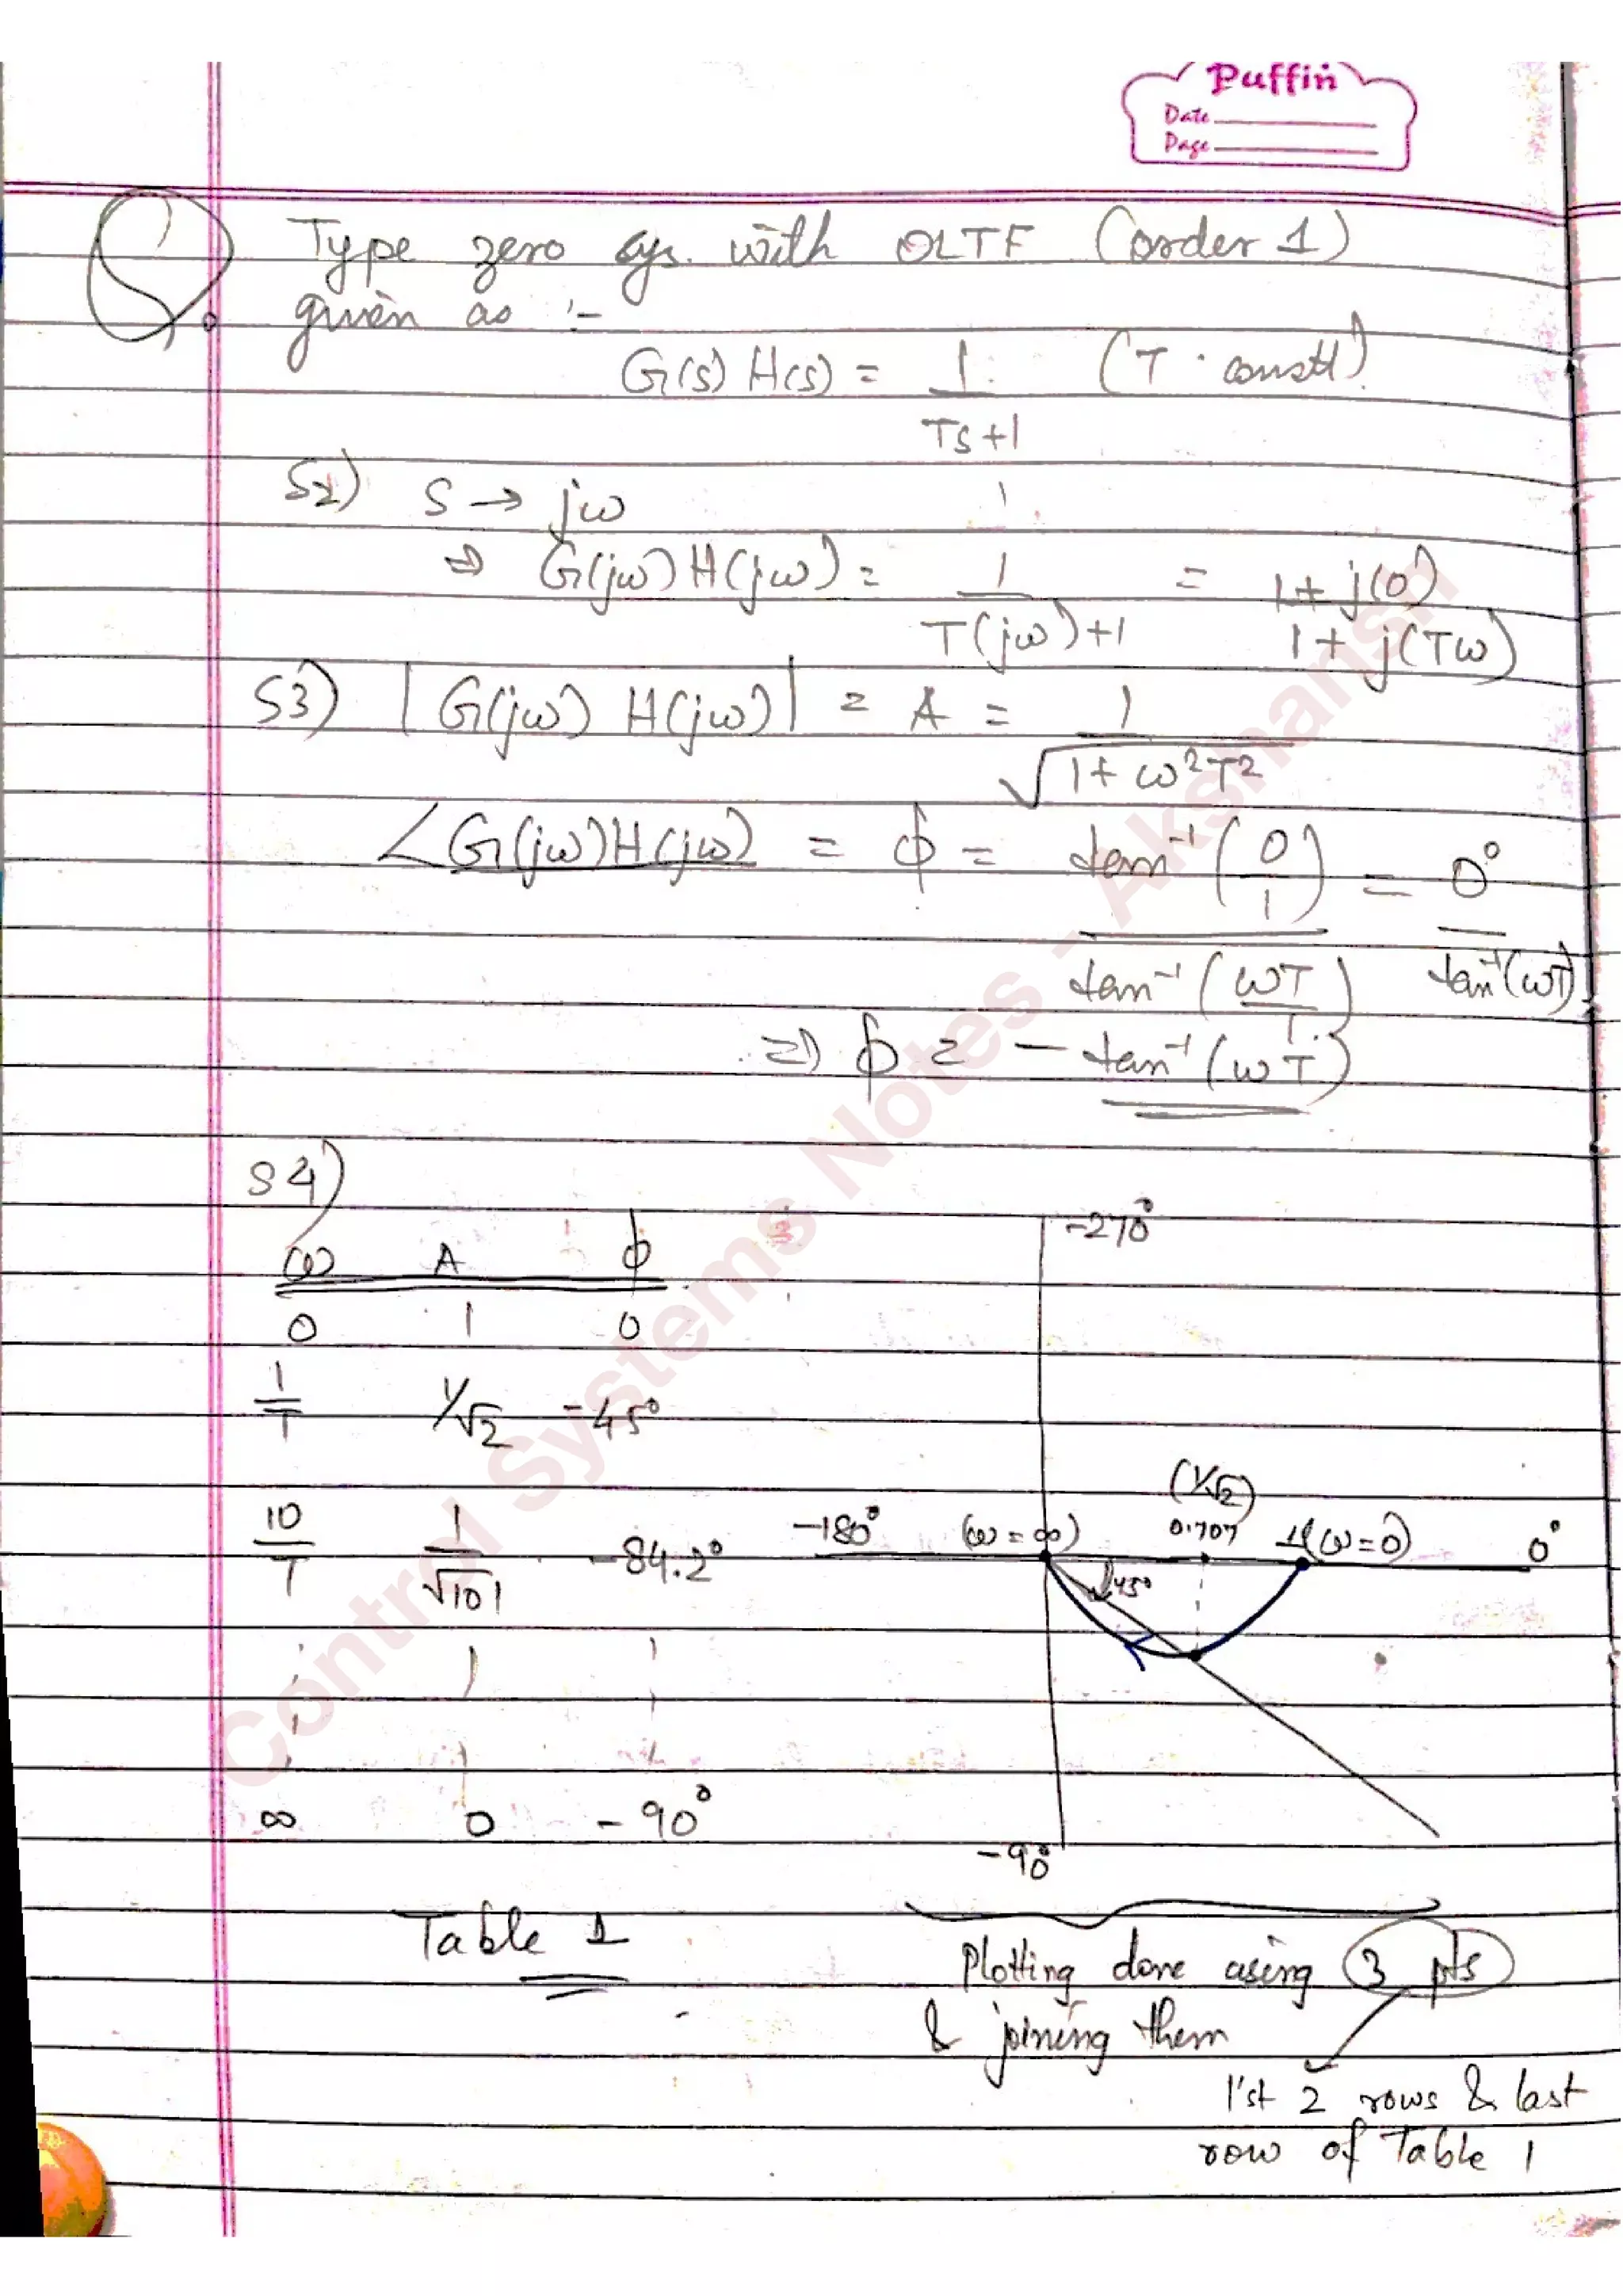 Puffin
Date
Page
Q.
Type zero sys. with OLTF (order 1)
given as :-
G(s) H(s) = 1 / Ts+1 (T · constt)
S2) S → jω
⇒ G(jω) H(jω) = 1 / T(jω)+1 = 1 + j(0) / 1 + j(Tω)
S3) |G(jω) H(jω)| = A = 1 / √1+ω²T²
∠G(jω)H(jω) = ϕ = tan⁻¹(0/1) / tan⁻¹(ωT/1) = 0° / tan⁻¹(ωT)
⇒ ϕ = - tan⁻¹(ωT)
S4)
ω A ϕ
0 1 0
1/T 1/√2 -45°
10/T 1/√101 -84.2°
∞ 0 -90°
Table 1
-270°
(1/√2)
-180° (ω=∞) 0.707 1(ω=0) 0°
45°
-90°
Plotting done using 3 pts
& joining them
1'st 2 rows & last
row of Table 1
Control Systems Notes - Akshansh